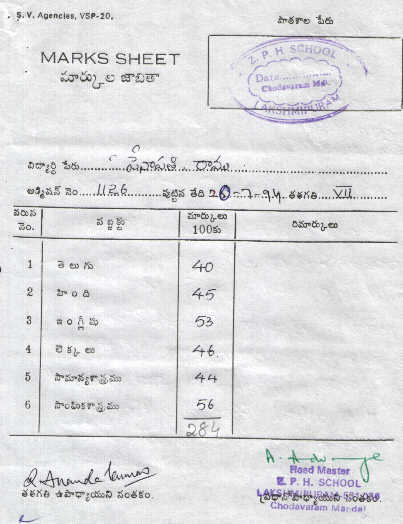 S. V. Agencies, VSP-20.
పాఠశాల పేరు
MARKS SHEET
మార్కుల జాబితా
Z. P. H SCHOOL
Date
Chodavaram Mdl.
LAKSHMIPURAM
విద్యార్థి పేరు రాము
అడ్మిషన్ నెం 1126 పుట్టిన తేది 20-7-94 తరగతి VII
వరుస నెం. సబ్జక్టు మార్కులు 100కు రిమార్కులు
1 తెలుగు 40
2 హింది 45
3 ఇంగ్లీషు 53
4 లెక్కలు 46
5 సామాన్యశాస్త్రము 44
6 సాంఘికశాస్త్రము 56
284
తరగతి ఉపాధ్యాయుని సంతకం.
ప్రధానోపాధ్యాయుని సంతకం.
Head Master
Z. P. H. SCHOOL
LAKSHMIPURAM
Chodavaram Mandal